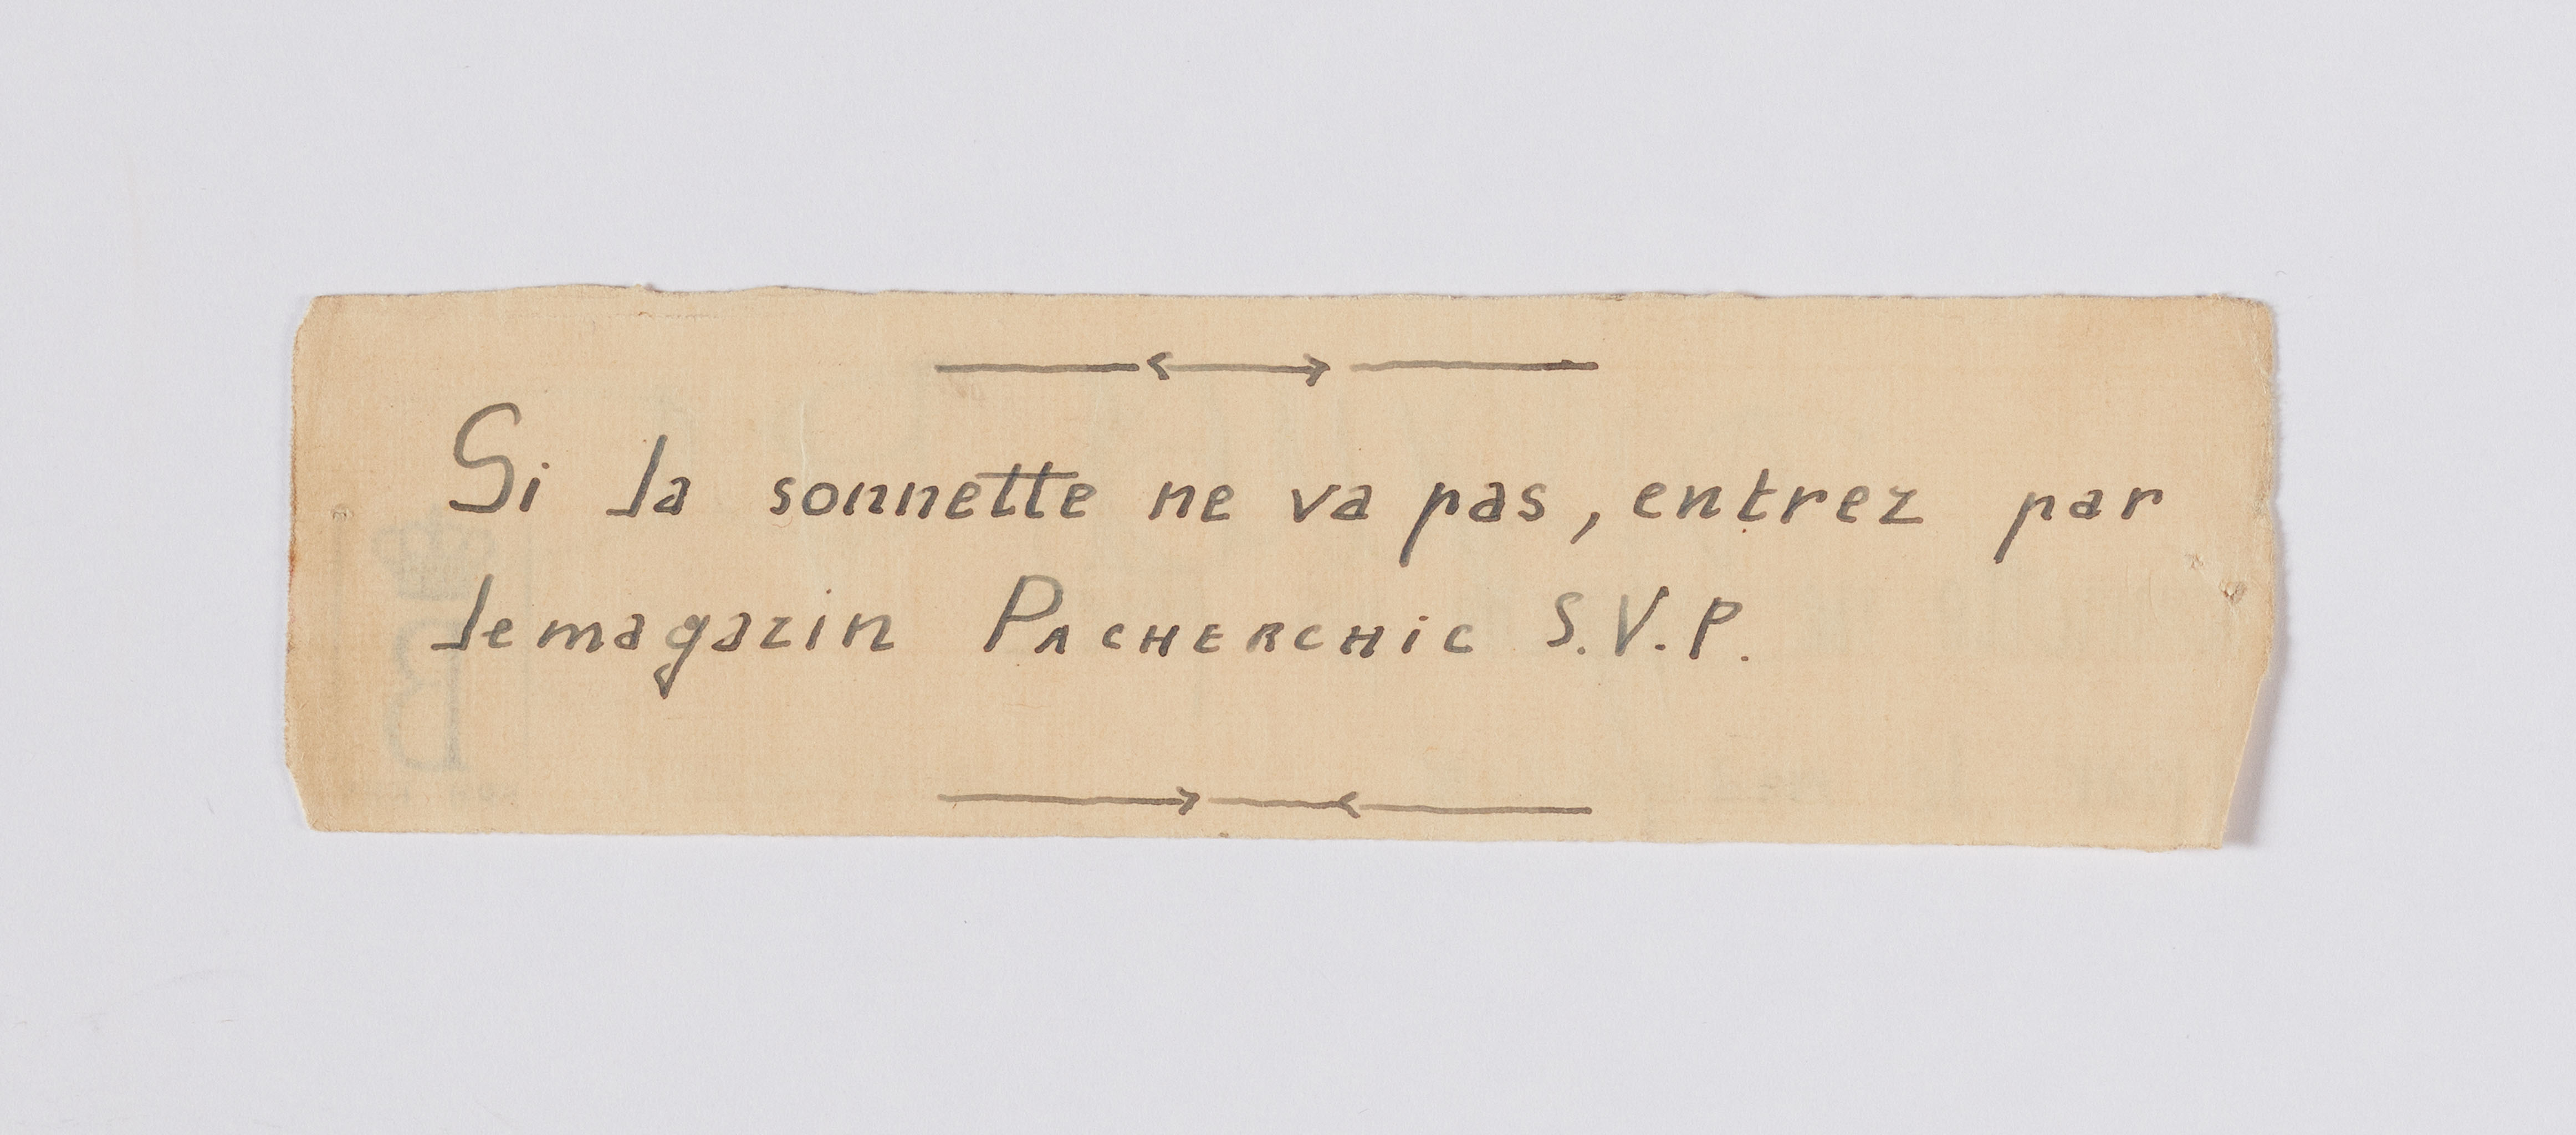 Si la sonnette ne va pas, entrez par
le magazin PACHERCHIC S.V.P.